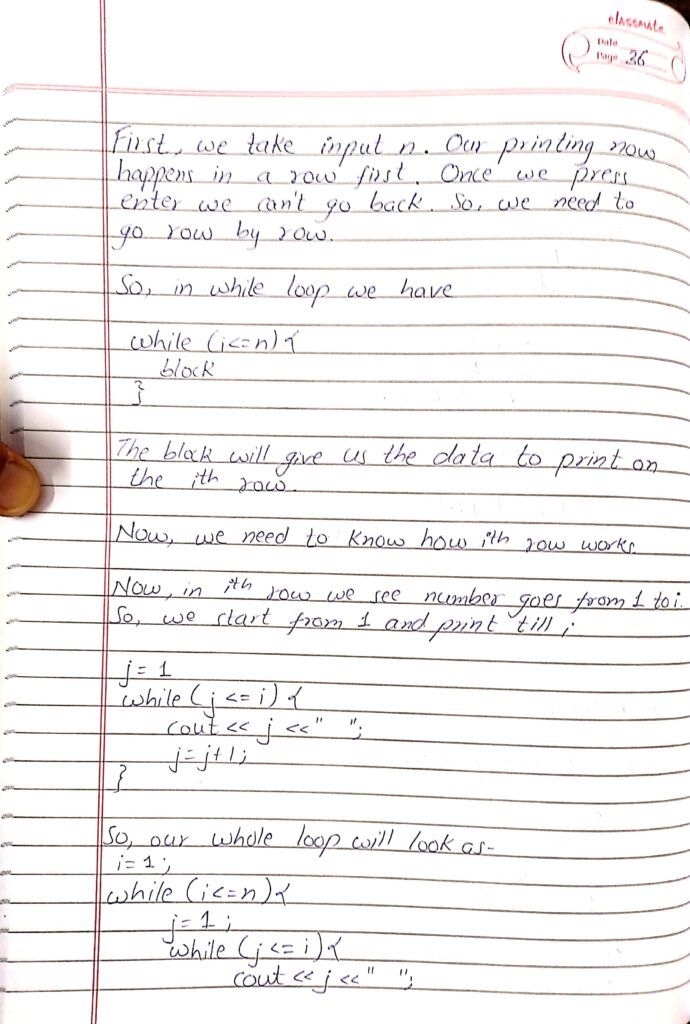 classmate
Date
Page 36
First, we take input n. Our printing now
happens in a row first. Once we press
enter we can't go back. So, we need to
go row by row.
So, in while loop we have
while (i<=n){
block
}
The block will give us the data to print on
the ith row.
Now, we need to know how ith row works
Now, in ith row we see number goes from 1 to i.
So, we start from 1 and print till i
j = 1
while (j <= i) {
cout << j <<" ";
j=j+1;
}
So, our whole loop will look as-
i=1;
while (i<=n){
j=1;
while (j<=i){
cout << j <<" ";